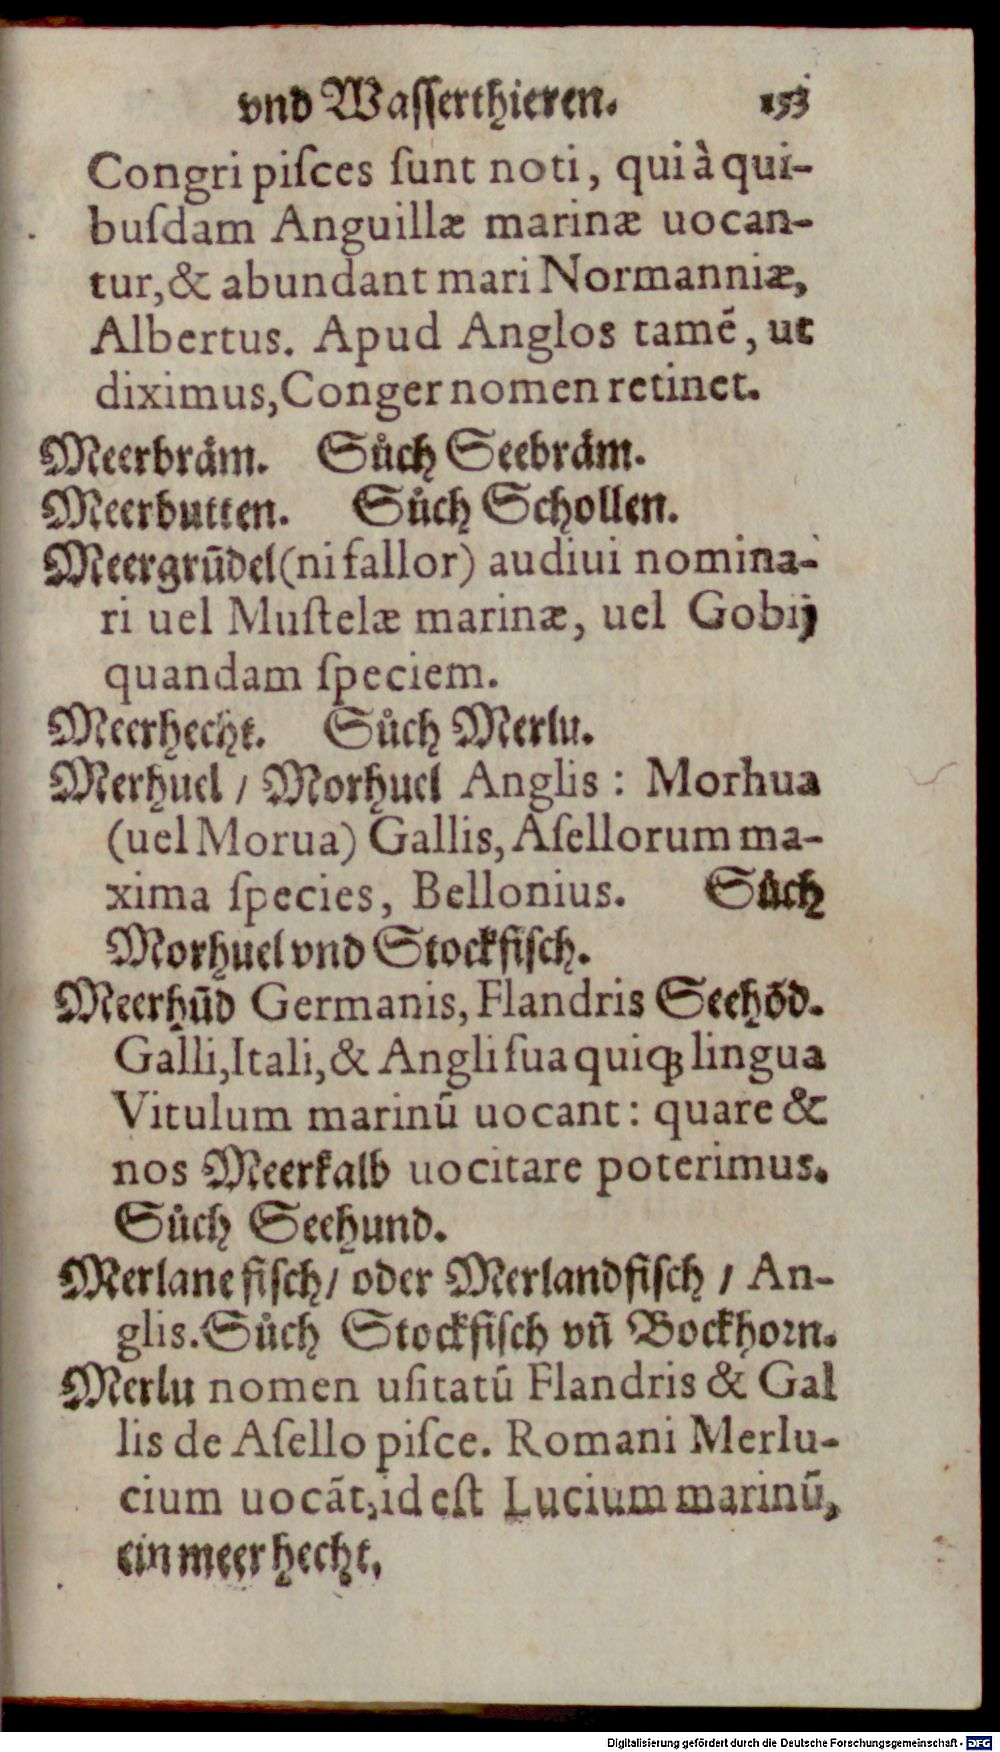 vnd Wasserthieren. 153
Congri piſces ſunt noti, qui à qui-
buſdam Anguillæ marinæ uocan-
tur, & abundant mari Normanniæ,
Albertus. Apud Anglos tamē, ut
diximus, Conger nomen retinet.
Meerbråm. Sůch Seebråm.
Meerbutten. Sůch Schollen.
Meergrūdel (ni fallor) audiui nomina-
ri uel Muſtelæ marinæ, uel Gobij
quandam ſpeciem.
Meerhecht. Sůch Merlu.
Merhuel / Morhuel Anglis : Morhua
(uel Morua) Gallis, Aſellorum ma-
xima ſpecies, Bellonius. Sůch
Morhuel vnd Stockfiſch.
Meerhūd Germanis, Flandris Seehōd.
Galli, Itali, & Angli ſua quiqꝫ lingua
Vitulum marinū uocant : quare &
nos Meerkalb uocitare poterimus.
Sůch Seehund.
Merlane fiſch / oder Merlandfiſch / An-
glis. Sůch Stockfiſch vñ Bockhorn.
Merlu nomen uſitatū Flandris & Gal
lis de Aſello piſce. Romani Merlu-
cium uocāt, id eſt Lucium marinū,
ein meer hecht.
Digitalisierung gefördert durch die Deutsche Forschungsgemeinschaft - DFG